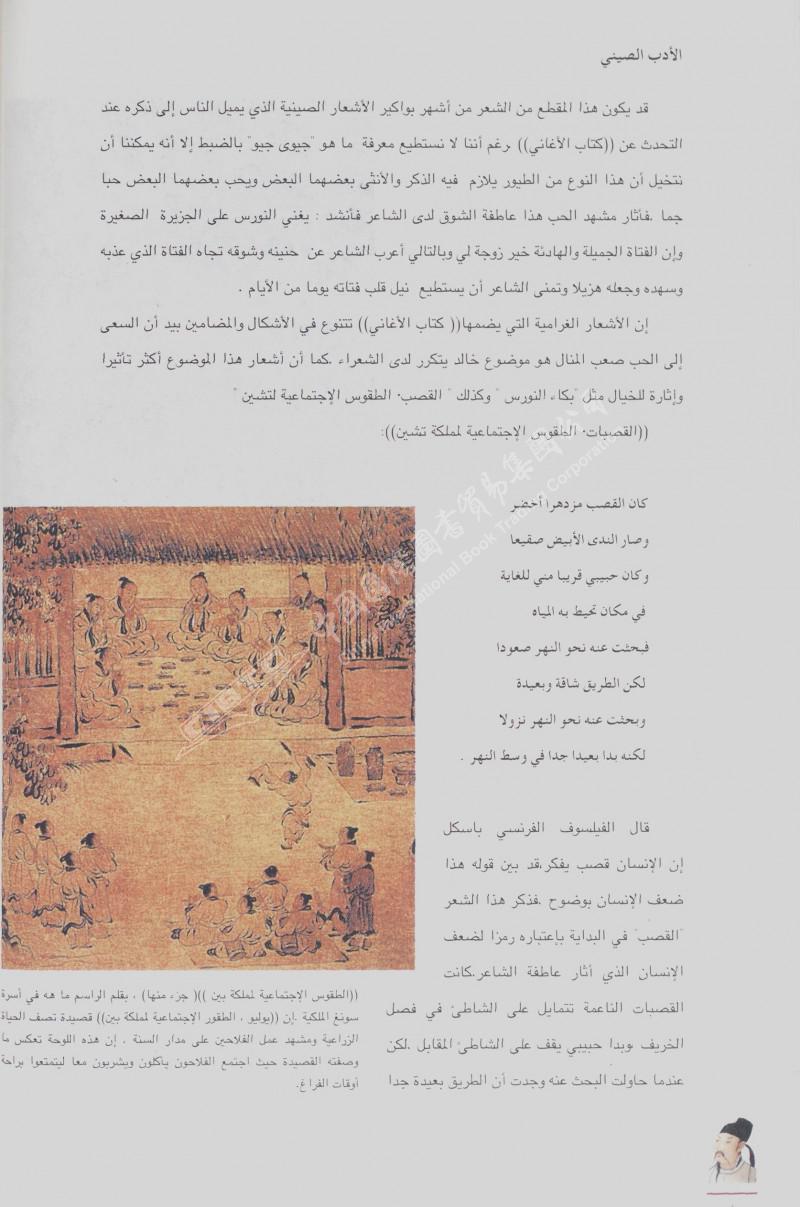 الأدب الصيني
قد يكون هذا المقطع من الشعر من أشهر بواكير الأشعار الصينية الذي يميل الناس إلى ذكره عند
التحدث عن ((كتاب الأغاني)) .رغم أننا لا نستطيع معرفة ما هو "جيوى جيو" بالضبط إلا أنه يمكننا أن
نتخيل أن هذا النوع من الطيور يلازم فيه الذكر والأنثى بعضهما البعض ويحب بعضهما البعض حبا
جما .فأثار مشهد الحب هذا عاطفة الشوق لدى الشاعر فأنشد : يغني النورس على الجزيرة الصغيرة
وإن الفتاة الجميلة والهادئة خير زوجة لي وبالتالي أعرب الشاعر عن حنينه وشوقه تجاه الفتاة الذي عذبه
وسهده وجعله هزيلا وتمنى الشاعر أن يستطيع نيل قلب فتاته يوما من الأيام .
إن الأشعار الغرامية التي يضمها(( كتاب الأغاني)) تتنوع في الأشكال والمضامين بيد أن السعى
إلى الحب صعب المنال هو موضوع خالد يتكرر لدى الشعراء .كما أن أشعار هذا الموضوع أكثر تأثيرا
وإثارة للخيال مثل "بكاء النورس " وكذلك " القصب· الطقوس الإجتماعية لتشين "
((القصبات· الطقوس الإجتماعية لمملكة تشين)):
كان القصب مزدهرا أخضر
وصار الندى الأبيض صقيعا
وكان حبيبي قريبا مني للغاية
في مكان تحيط به المياه
فبحثت عنه نحو النهر صعودا
لكن الطريق شاقة وبعيدة
وبحثت عنه نحو النهر نزولا
لكنه بدا بعيدا جدا في وسط النهر .
قال الفيلسوف الفرنسي باسكل
إن الإنسان قصب يفكر،قد بين قوله هذا
ضعف الإنسان بوضوح .فذكر هذا الشعر
"القصب" في البداية بإعتباره رمزا لضعف
الإنسان الذي أثار عاطفة الشاعر.كانت
القصبات الناعمة تتمايل على الشاطئ في فصل
الخريف وبدا حبيبي يقف على الشاطئ المقابل .لكن
عندما حاولت البحث عنه وجدت أن الطريق بعيدة جدا
((الطقوس الإجتماعية لمملكة بين ))( جزء منها) ، بقلم الراسم ما هه في أسرة
سونغ الملكية .إن ((يوليو ، الطقور الإجتماعية لمملكة بين)) قصيدة تصف الحياة
الزراعية ومشهد عمل الفلاحين على مدار السنة ، إن هذه اللوحة تعكس ما
وصفته القصيدة حيث اجتمع الفلاحون يأكلون ويشربون معا ليتمتعوا براحة
أوقات الفراغ.
中国国际图书贸易集团公司
International Book Trading Corporation